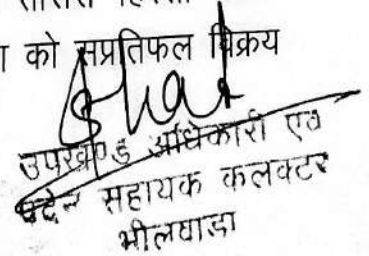 को सप्रतिफल विक्रय
उपखण्ड अधिकारी एवं
पदेन सहायक कलक्टर
भीलवाडा